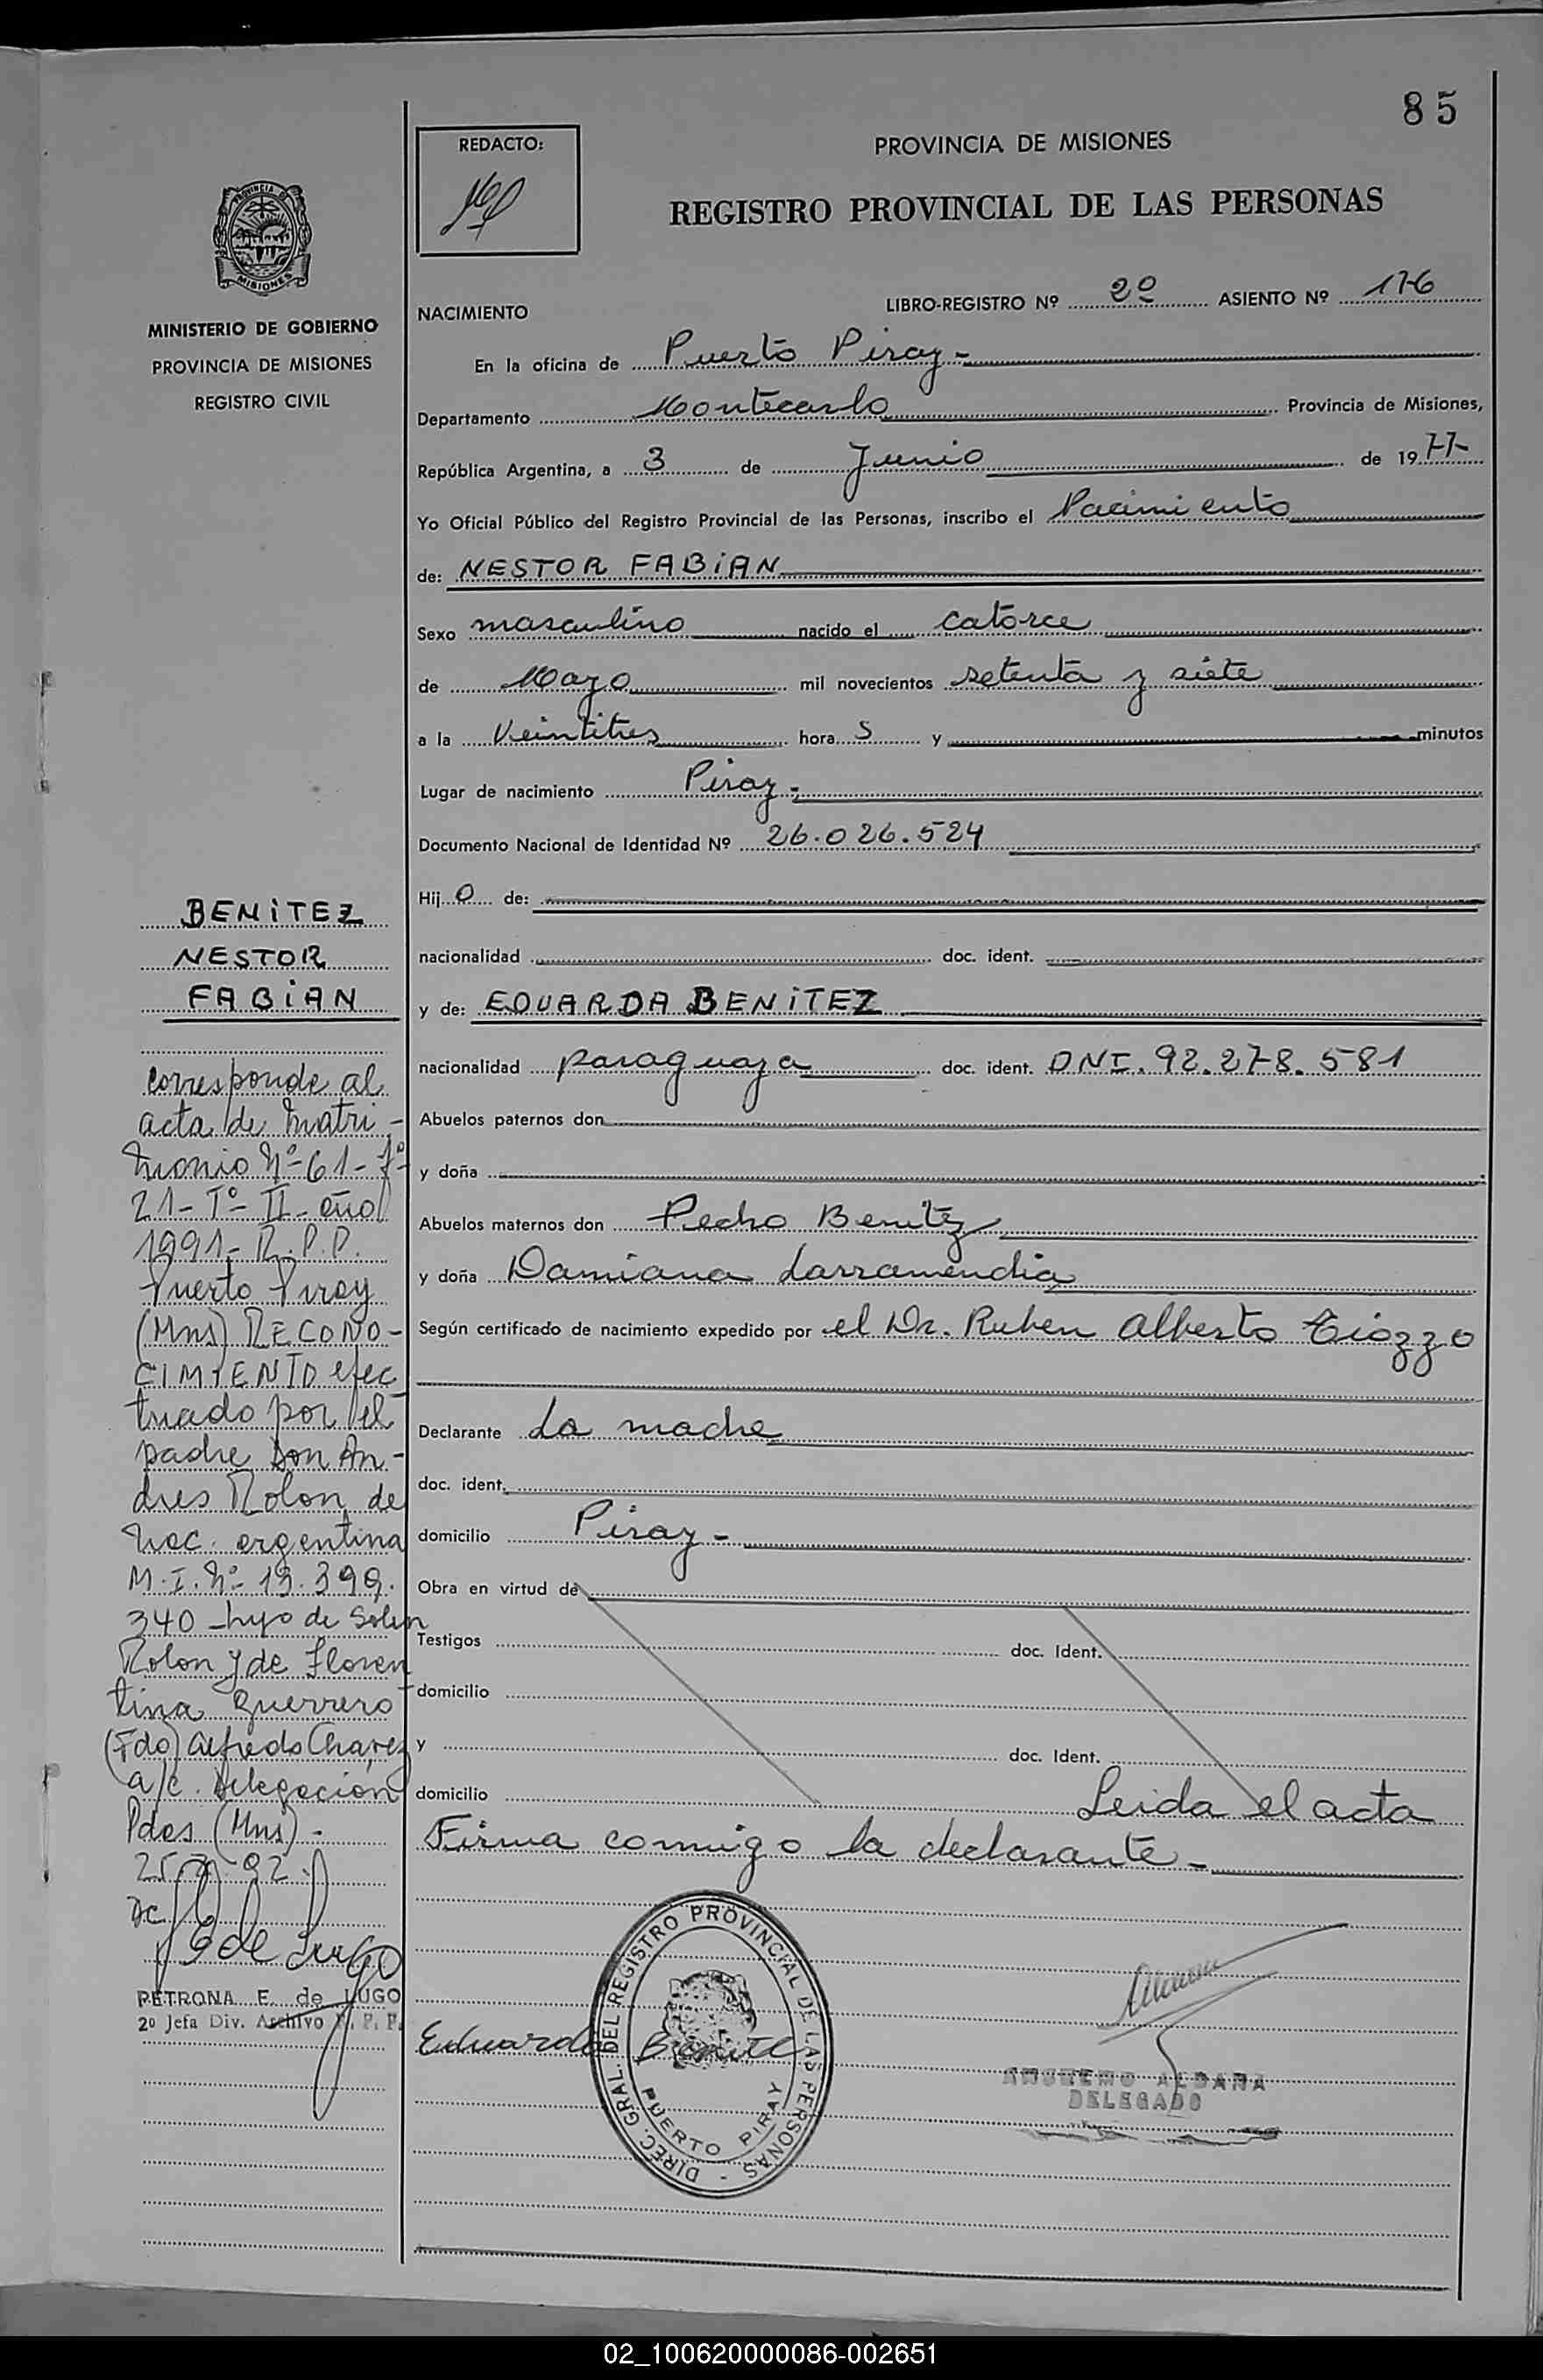 85
REDACTO:
PROVINCIA DE MISIONES
REGISTRO PROVINCIAL DE LAS PERSONAS
PROVINCIA DE
MISIONES
MINISTERIO DE GOBIERNO
PROVINCIA DE MISIONES
REGISTRO CIVIL
NACIMIENTO
LIBRO-REGISTRO Nº 2º ASIENTO Nº 176
En la oficina de Puerto Piray -
Departamento Montecarlo Provincia de Misiones,
República Argentina, a 3 de Junio de 1977-
Yo Oficial Público del Registro Provincial de las Personas, inscribo el Nacimiento
de: NESTOR FABIAN
Sexo masculino nacido el catorce
de Mayo mil novecientos setenta y siete
a la Veintitres hora s y minutos
Lugar de nacimiento Piray -
Documento Nacional de Identidad Nº 26.026.524
Hij o de:
nacionalidad doc. ident.
y de: EDUARDA BENITEZ
nacionalidad paraguaya doc. ident. DNI. 92.278.581
Abuelos paternos don
y doña
Abuelos maternos don Pedro Benitez
y doña Damiana Larramendia
Según certificado de nacimiento expedido por el Dr. Ruben Alberto Tiozzo
Declarante La madre
doc. ident.
domicilio Piray -
Obra en virtud de
Testigos doc. Ident.
domicilio
y doc. Ident.
domicilio Leida el acta
Firma conmigo la declarante -
BENITEZ
NESTOR
FABIAN
corresponde al
acta de matri-
monio Nº 61 - Fº
21 - Tº - II - año
1991 - R.P.P.
Puerto Piray
(Mns) RECONO-
CIMIENTO efec
tuado por el
padre Don An-
dres Rolon de
nac. argentina
M.I. Nº 13.399.
340 - hijo de
Rolon y de Floren
tina Guerrero
(Fdo) Alfredo Chavez
a/c. Delegación
Pdas (Mns) -
PETRONA E. de LUGO
2º Jefa Div. Archivo R. P. P.
Eduarda Benitez
DIREC. GRAL. DEL REGISTRO PROVINCIAL DE LAS PERSONAS -
PUERTO PIRAY
ALDANA
DELEGADO
02_100620000086-002651